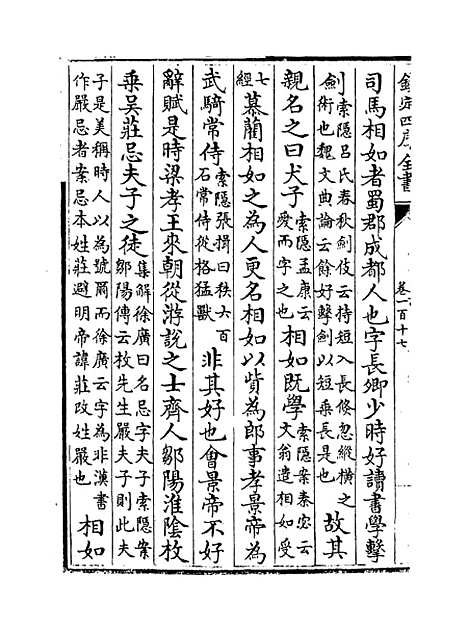 欽定四庫全書 卷一百十七
司馬相如者蜀郡成都人也字長卿少時好讀書學擊
劍索隱呂氏春秋劍伎云持短入長倏忽縱橫之術也魏文典論云餘好擊劍以短乘長是也故其
親名之曰犬子索隱孟康云愛而字之也相如既學索隱案秦宓云文翁遣相如受
七經慕藺相如之為人更名相如以貲為郎事孝景帝為
武騎常侍索隱張揖曰秩六百石常侍從格猛獸非其好也會景帝不好
辭賦是時梁孝王來朝從游說之士齊人鄒陽淮陰枚
乘吳莊忌夫子之徒集解徐廣曰名忌字夫子索隱案鄒陽傳云枚先生嚴夫子則此夫
子是美稱時人以為號爾而徐廣云字為非漢書作嚴忌者案忌本姓莊避明帝諱莊改姓嚴也相如